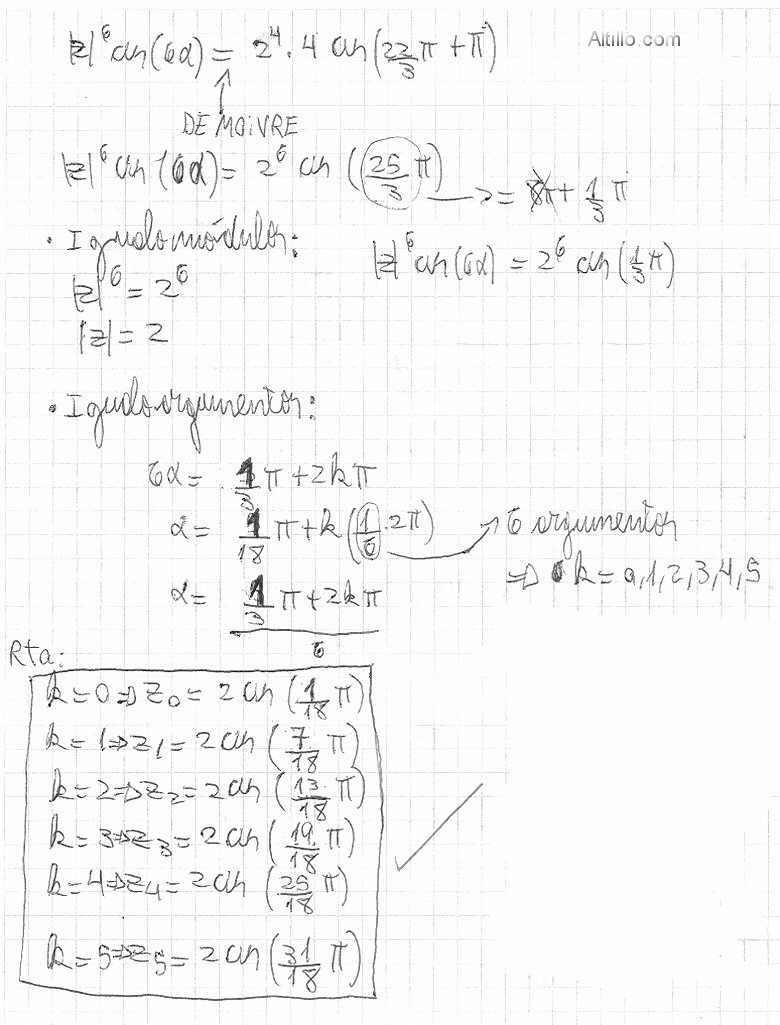 Altillo.com
|z|^6 cis(6α) = 2^4 . 4 cis(22/3 π + π)
DE MOIVRE
|z|^6 cis(6α) = 2^6 cis(25/3 π) → = 8π + 1/3 π
• Igualo módulos:
|z|^6 cis(6α) = 2^6 cis(1/3 π)
|z|^6 = 2^6
|z| = 2
• Igualo argumentos:
6α = 1/3 π + 2kπ
α = 1/18 π + k(1/6 . 2π) → 6 argumentos
⇒ k = 0,1,2,3,4,5
α = (1/3 π + 2kπ)/6
Rta:
k = 0 ⇒ z0 = 2 cis(1/18 π)
k = 1 ⇒ z1 = 2 cis(7/18 π)
k = 2 ⇒ z2 = 2 cis(13/18 π)
k = 3 ⇒ z3 = 2 cis(19/18 π)
k = 4 ⇒ z4 = 2 cis(25/18 π)
k = 5 ⇒ z5 = 2 cis(31/18 π)